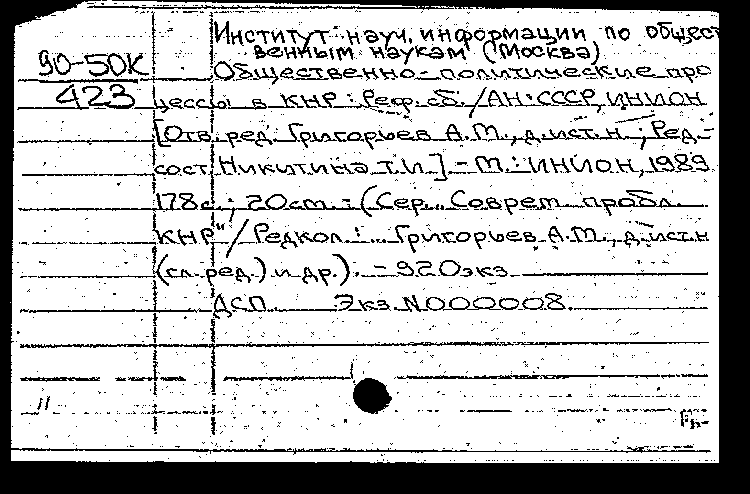 Институт науч. информации по общест
венным наукам (Москва)
90-50К
Общественно-политические про
423
цессы в КНР : Реф. сб. / АН СССР, ИНИОН
[Отв. ред. Григорьев А.М., д.ист.н. ; Ред.-
сост. Никитина Т.И.] - М. : ИНИОН, 1989
178 с. ; 20 см. - (Сер. "Соврем. пробл.
КНР" / Редкол. : Григорьев А.М., д.ист.н
(гл. ред.) и др.). - 920 экз
ДСП Экз. N000008.
11